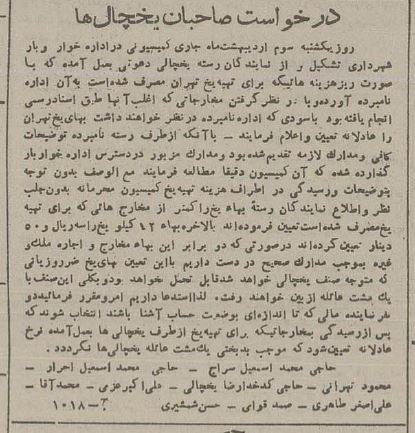 درخواست صاحبان یخچال‌ها
روز یکشنبه سوم اردیبهشت ماه جاری کمیسیونی در اداره خوار و بار
شهرداری تشکیل و از نمایندگان رسته یخچالی دعوتی بعمل آمده که با
صورت ریز هزینه هائیکه برای تهیه یخ تهران مصرف شده است به آن اداره
نامبرده آورده و با در نظر گرفتن مخارجاتی که اغلب آنها طبق اسناد رسمی
انجام یافته بود با سودی که اداره نامبرده در نظر خواهند داشت بهای یخ تهران
را عادلانه تعیین و اعلام فرمایند – با آنکه از طرف رسته نامبرده توضیحات
کافی و مدارك لازمه تقدیم شده بود و مدارك مزبور در دسترس اداره خوار بار
گذارده شده که آن کمیسیون دقیقا مطالعه فرمایند مع الوصف بدون توجه
بتوضیحات و رسیدگی در اطراف هزینه تهیه یخ کمیسیون محرمانه بدون جلب
نظر و اطلاع نمایندگان رسته بهاء یخ را کمتر از مخارج هائی که برای تهیه
یخ مصرف شده است تعیین فرموده‌اند بالاخره بهاء ۱۲ کیلو یخ را سه ریال و ۵۰
دینار تعیین کرده‌اند در صورتی که دو برابر این بهاء مخارج و اجاره ملك و
غیره بموجب مدارك صحیح در دست داریم با این تعیین بهای یخ ضرر و زیانی
که متوجه صنف یخچالی خواهد شد قابل تحمل نخواهد بود و بکلی این صنف با
یك مشت عائله از بین خواهند رفت. لذا استدعا داریم امر و مقرر فرمائید دو
نفر نماینده مالی که تا اندازه‌ای بوضعیت حساب آشنا باشند انتخاب شوند که
پس از رسیدگی بمخارجاتیکه برای تهیه یخ از طرف یخچالی ها بعمل آمده نرخ
عادلانه تعیین شود که موجب بدبختی یك مشت عائله یخچالی ها نگردد.
حاجی محمد اسمعیل سراج – حاجی محمد اسمعیل احرار –
محمود تهرانی – حاجی کدخدا رضا یخچالی – علی اکبر عزمی – محمد آقا –
علی اصغر طاهری – صمد قوامی – حسن شمشیری ۱۰۱۸–